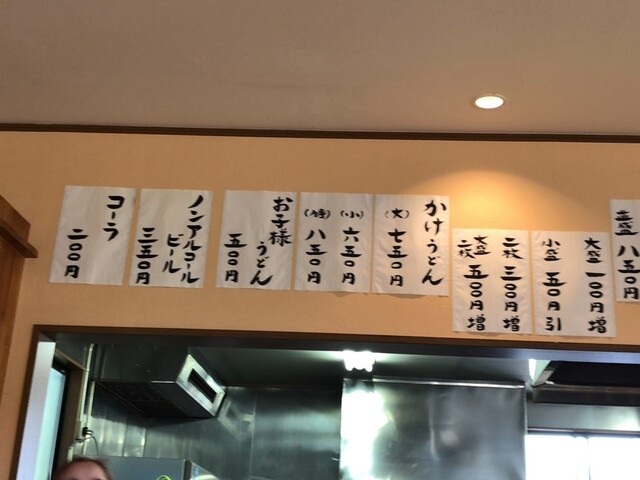 盛
八五〇円
大盛 一〇〇円増
小盛 五〇円引
二枚 三〇〇円増
大盛二枚 五〇〇円増
かけうどん
(大) 七五〇円
(小) 六五〇円
八五〇円
お子様
うどん
五〇〇円
ノンアルコール
ビール
三五〇円
コーラ
二〇〇円